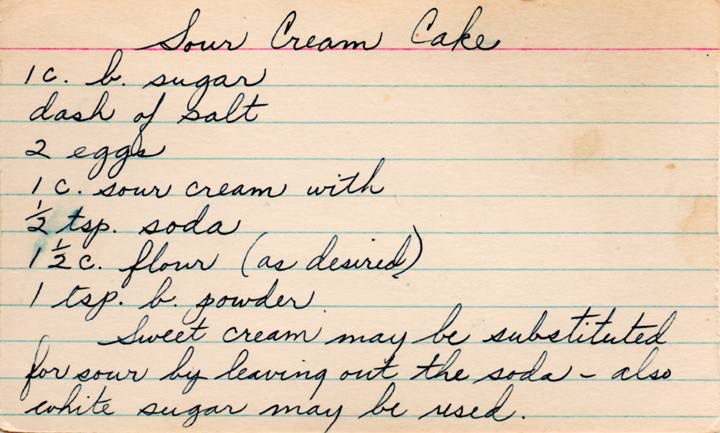 Sour Cream Cake
1 c. b. sugar
dash of salt
2 eggs
1 c. sour cream with
½ tsp. soda
1 ½ c. flour (as desired)
1 tsp. b. powder
Sweet cream may be substituted
for sour by leaving out the soda - also
white sugar may be used.